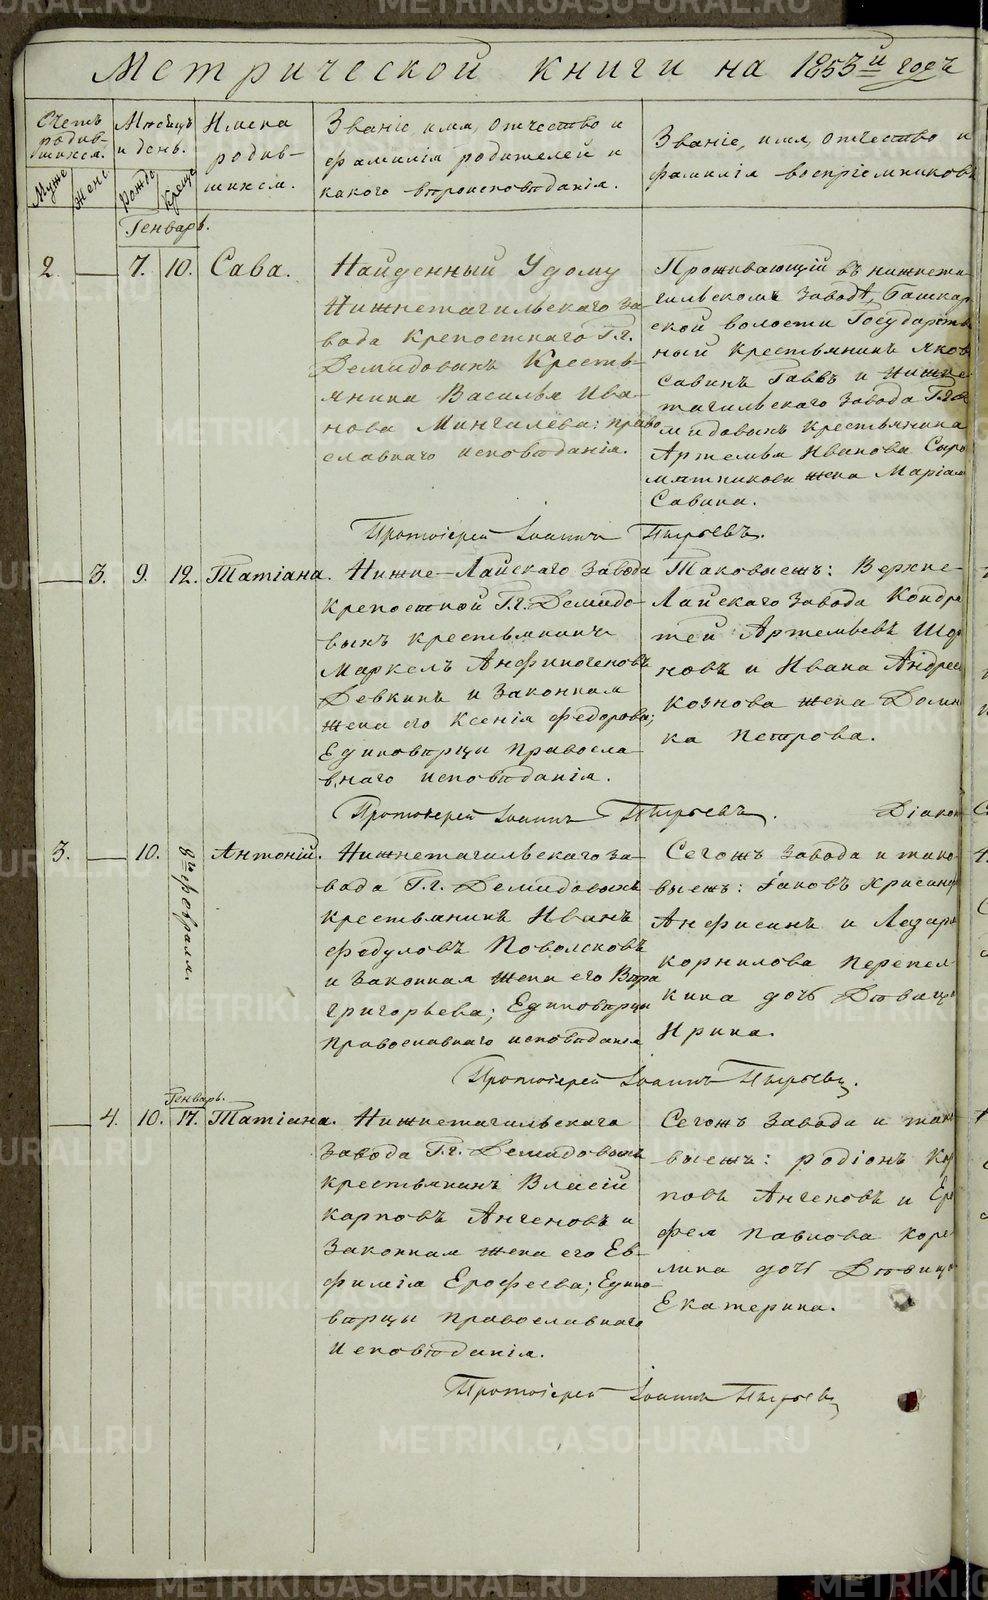 Метрической книги на 1853й годъ
Счетъ
родив-
шихся.
Муже
Жен
Мѣсяцъ
и день.
Рожд
Креще
Имена
родив-
шихся.
Званіе, имя, отчество и
фамилія родителей и
какого вѣроисповѣданія.
Званіе, имя, отчество и
фамилія воспріемниковъ
Генварь.
2. 7. 10. Сава.
Найденный у дому
Нижнетагильскаго за
вода крепостнаго Г.г.
Демидовыхъ Кресть-
янина Василья Ива-
нова Мингилева: право
славнаго исповѣданія.
Проживающій въ нижнета-
гильскомъ заводѣ, Башкар
ской волости Государств
ный крестьянинъ Яков
Савинъ и нижне-
тагильскаго завода Г.г. Де
мидовыхъ крестьянина
Артемья Иванова Сыро
мятникова жена Марія
Савина.
Протоіерей Іоаннъ Пырьевъ.
3. 9. 12. Татіана.
Нижне-Лайскаго завода
крепостной Г.г. Демидо-
выхъ крестьянинъ
Маркелъ Анфиногеновъ
Девкинъ и законная
жена его Ксенія Федорова;
Единовѣрцы правосла
внаго исповѣданія.
Таковыежъ: Верхне-
Лайскаго завода Кондра
тей Артемьевъ
новъ и Ивана Андрее
кознова жена Домни
ка Петрова.
Протоіерей Іоаннъ Пырьевъ. Діакон
3. 10. 8го февраля. Антоній.
Нижнетагильскаго за-
вода Г.г. Демидовыхъ
крестьянинъ Иванъ
Федуловъ Поволсковъ
и законная жена его Вѣра
григорьева; Единовѣрцы
Православнаго исповѣданія
Сегожъ завода и тако-
выежъ: Іаковъ Хрисанф
Анфисинъ и Лазаря
корнилова перепел-
кина дочь Дѣвица
Ирина.
Протоіерей Іоаннъ Пырьевъ.
Генварь.
4. 10. 17. Татіана.
Нижнетагильскаго
завода Г.г. Демидовыхъ
крестьянинъ Власій
карповъ Анченовъ и
законная жена его Ев-
фимія Ерофеева; Едино-
вѣрцы православнаго
исповѣданія.
Сегожъ завода и тако
выежъ: родіонъ Кар
повъ Анченовъ и Еро
фея Павлова коре
лина дочь Дѣвица
Екатерина.
Протоіерей Іоаннъ Пырьевъ
METRIKI.GASO-URAL.RU